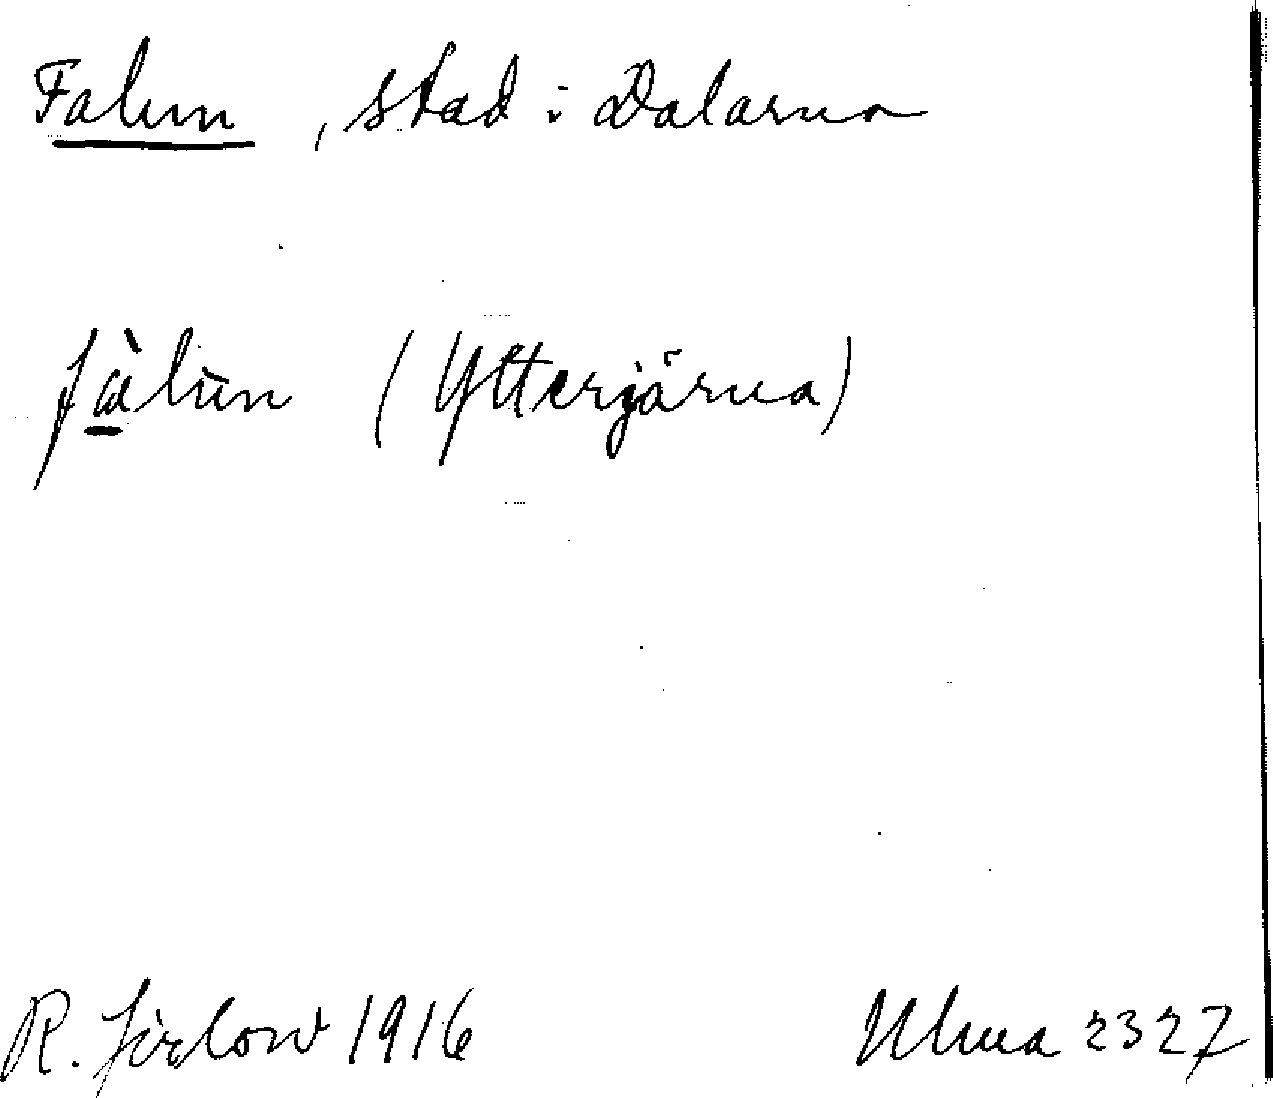 Falun, stad i Dalarna
fàlun (Ytterjärna)
R. Jirlow 1916
Ulma 2327